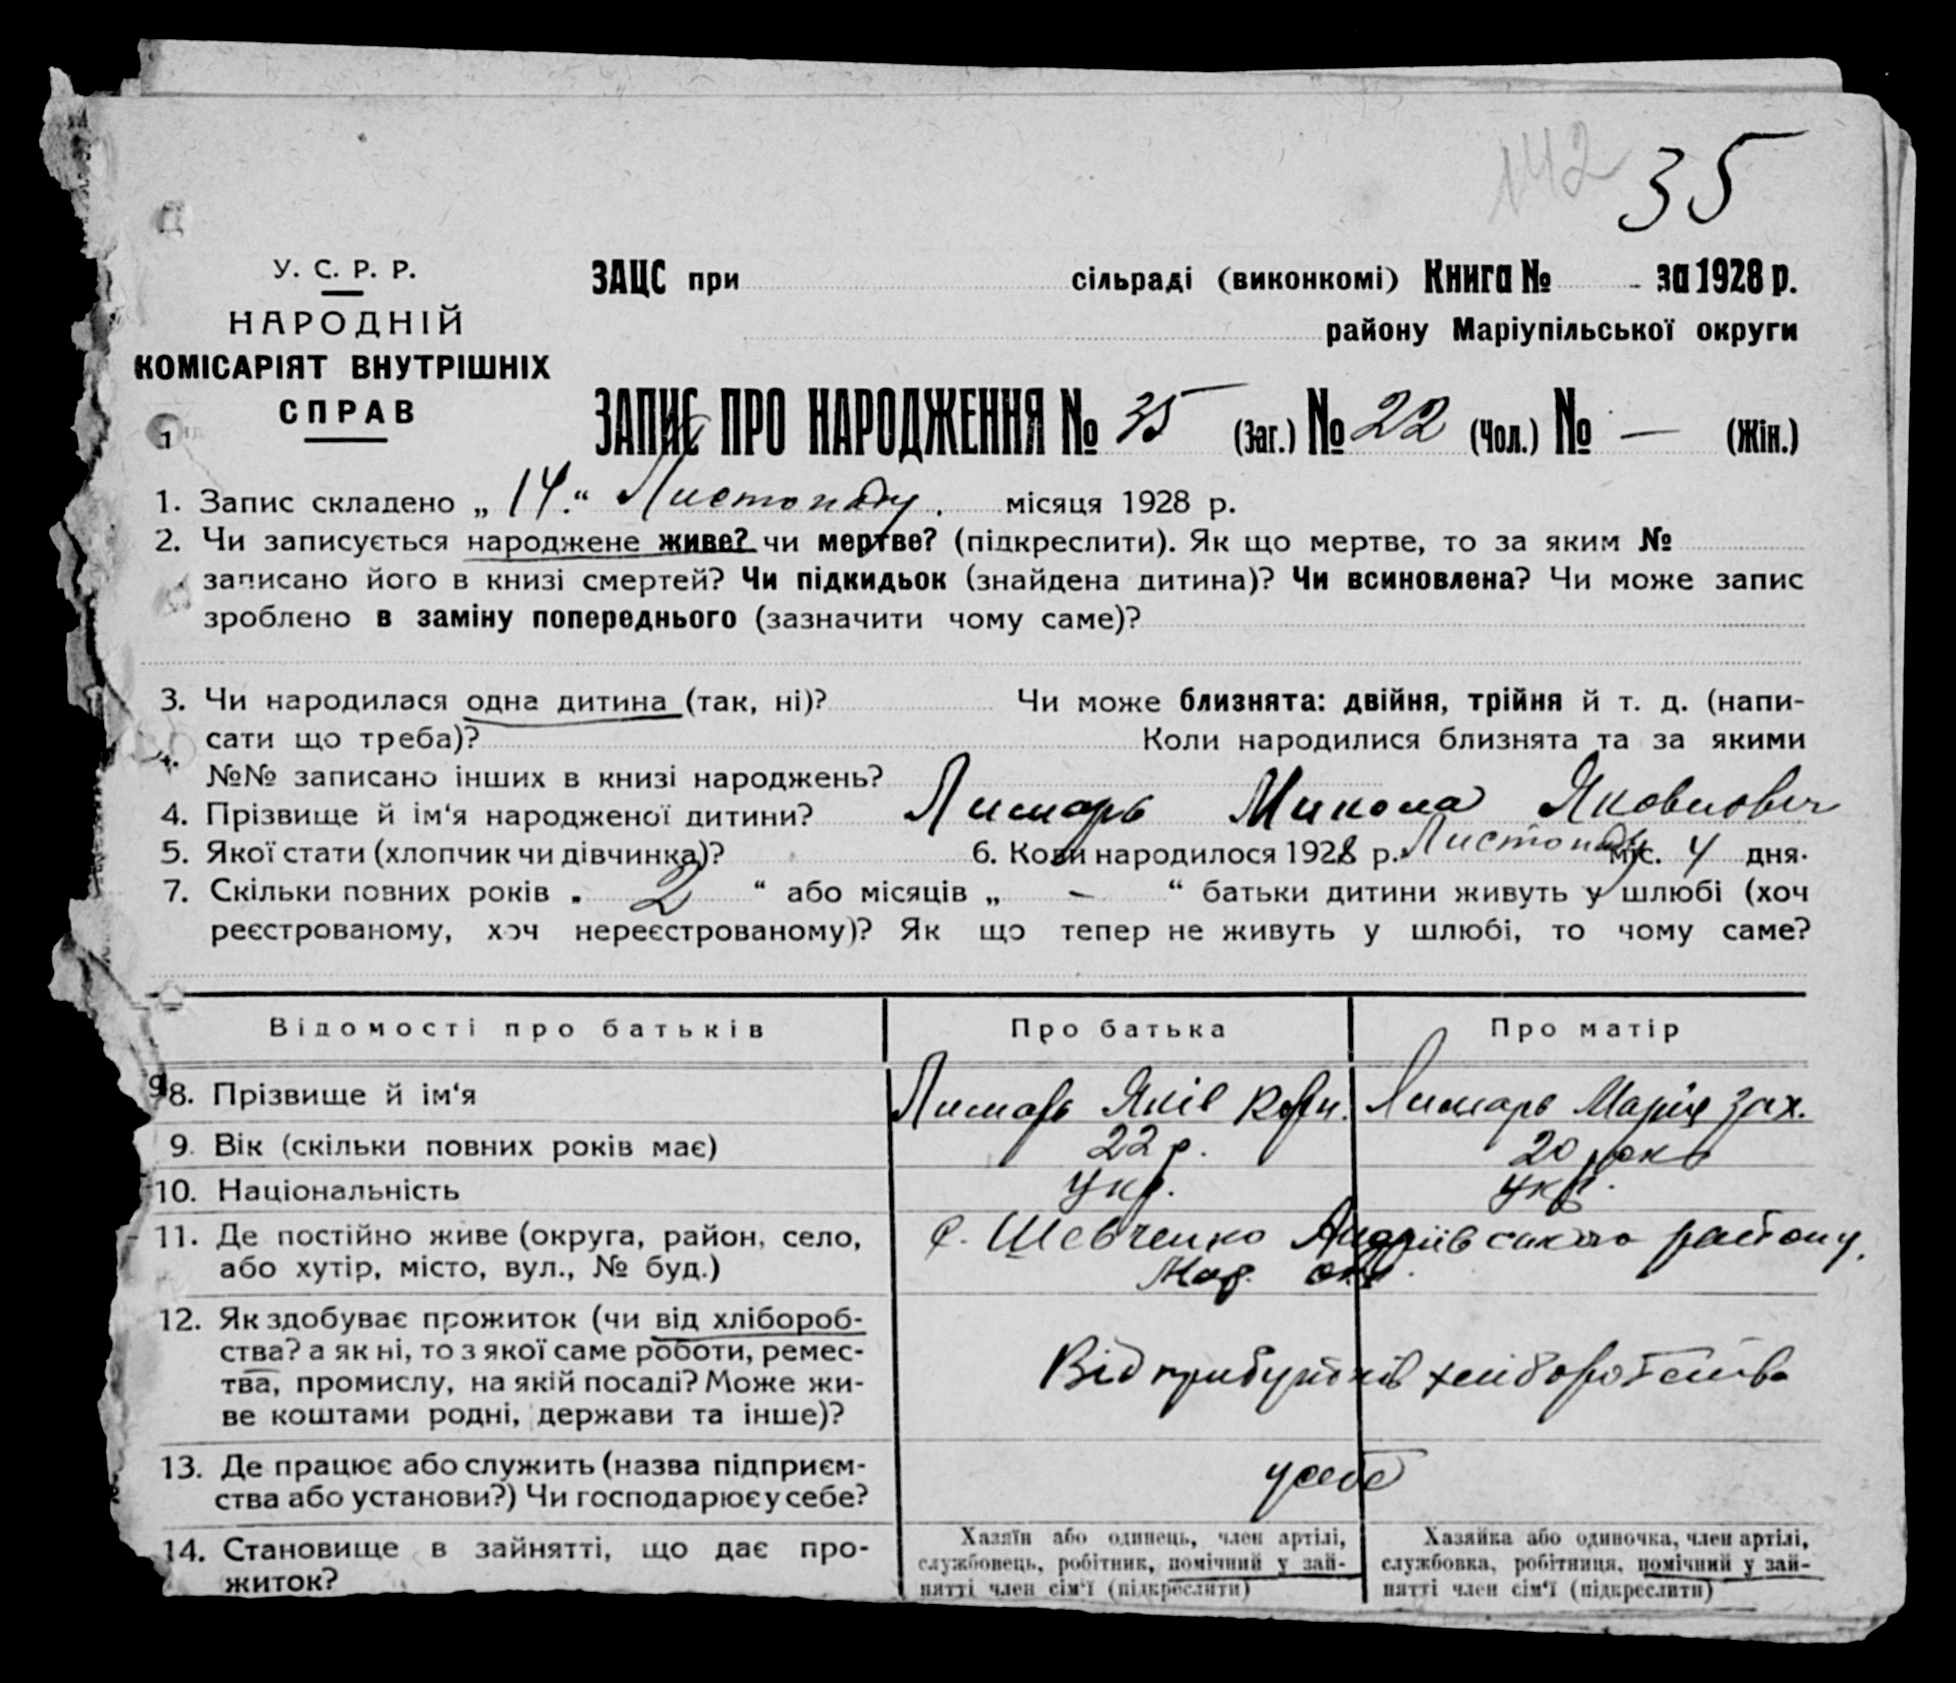 142 35
У. С. Р. Р.
НАРОДНІЙ
КОМІСАРІЯТ ВНУТРІШНІХ
СПРАВ
ЗАЦС при сільраді (виконкомі) Книга № за 1928 р.
району Маріупільської округи
ЗАПИС ПРО НАРОДЖЕННЯ № 35 (Заг.) № 22 (Чол.) № — (Жін.)
1. Запис складено „ 14 “ Листопаду місяця 1928 р.
2. Чи записується народжене живе? чи мертве? (підкреслити). Як що мертве, то за яким №
записано його в книзі смертей? Чи підкидьок (знайдена дитина)? Чи всиновлена? Чи може запис
зроблено в заміну попереднього (зазначити чому саме)?
3. Чи народилася одна дитина (так, ні)? Чи може близнята: двійня, трійня й т. д. (напи-
сати що треба)? Коли народилися близнята та за якими
№№ записано інших в книзі народжень?
4. Прізвище й ім‘я народженої дитини? Лимарь Микола Яковлович
5. Якої стати (хлопчик чи дівчинка)? 6. Коли народилося 1928 р. Листопаду міс. 4 дня.
7. Скільки повних років „ 2 “ або місяців „ – “ батьки дитини живуть у шлюбі (хоч
реєстрованому, хоч нереєстрованому)? Як що тепер не живуть у шлюбі, то чому саме?
Відомості про батьків Про батька Про матір
8. Прізвище й ім‘я Лимарь Яків Корн. Лимарь Марія Зах.
9. Вік (скільки повних років має) 22 р. 20 рокв
10. Національність Укр. Укр.
11. Де постійно живе (округа, район, село, с. Шевченко Андріївського району,
або хутір, місто, вул., № буд.) Мар. окр.
12. Як здобуває прожиток (чи від хлібороб-
ства? а як ні, то з якої саме роботи, ремес-
тва, промислу, на якій посаді? Може жи- Від прибутків хліборобства
ве коштами родні, держави та інше)?
13. Де працює або служить (назва підприєм- у себе
ства або установи?) Чи господарює у себе?
14. Становище в зайнятті, що дає про-
житок?
Хазяїн або одинець, член артілі,
службовець, робітник, помічний у зай-
нятті член сім‘ї (підкреслити)
Хазяйка або одиночка, член артілі,
службовка, робітниця, помічний у зай-
нятті член сім‘ї (підкреслити)